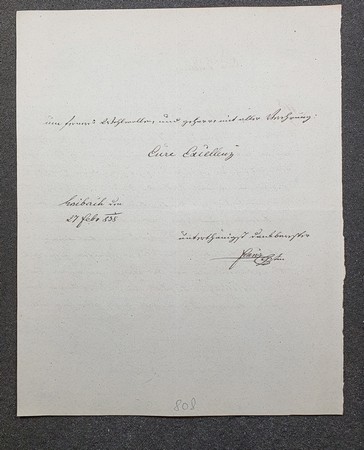 um ferner Wohlwollen, und geharre mit aller Verehrung
Eure Excellenz
Laibach den
27 Febr 838
unterthänigst dankbarster
808